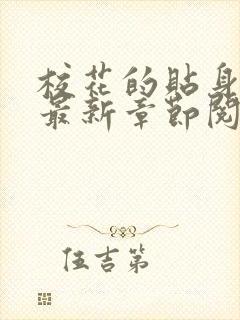 校花的貼身
最新章節閱
伍吉第